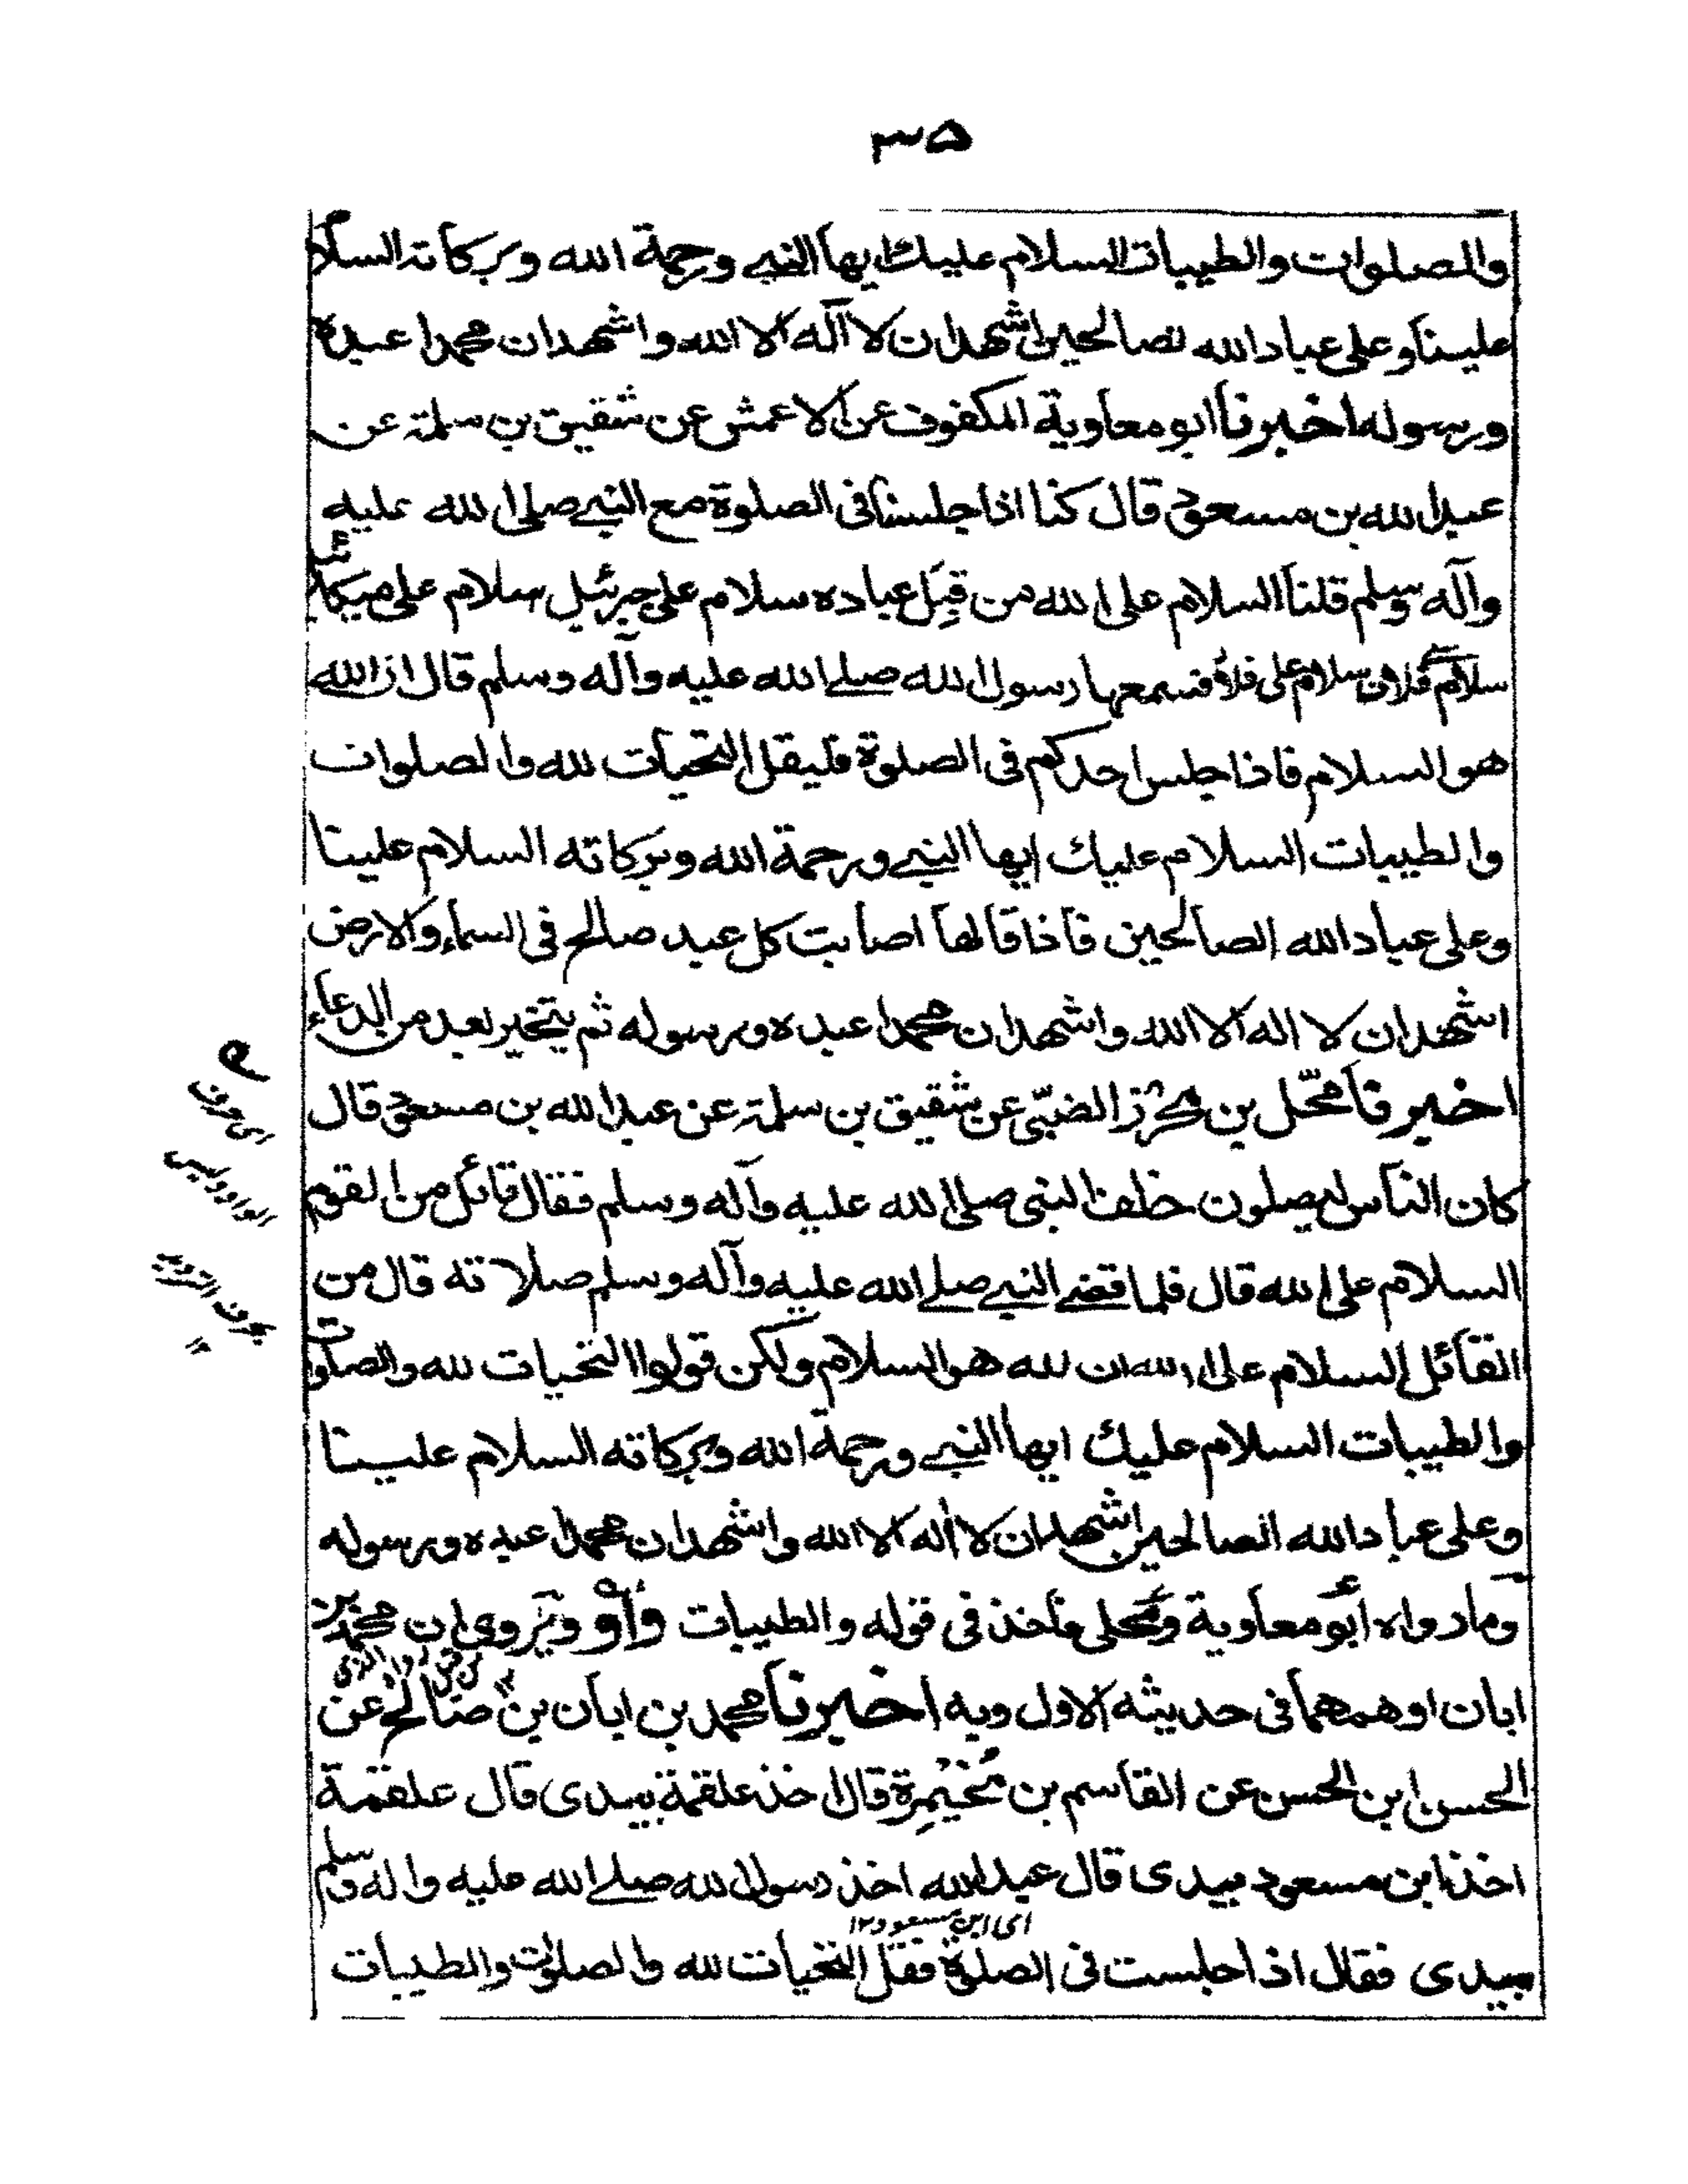 ٣٥
والصلوات والطيبات السلام عليك ايها النبي ورحمة الله وبركاته السلام
علينا وعلى عباد الله الصالحين اشهد ان لا اله الا الله واشهد ان محمدا عبده
ورسوله اخبرنا ابو معاوية المكفوف عن الاعمش عن شقيق بن سلمة عن
عبد الله بن مسعود قال كنا اذا جلسنا فى الصلوة مع النبي صلى الله عليه
وآله وسلم قلنا السلام على الله من قِبَل عباده سلام على جبرئيل سلام على ميكائيل
سلام على فلان سلام على فلان فسمعها رسول الله صلے الله عليه وآله وسلم قال ان الله
هو السلام فاذا جلس احدكم فى الصلوة فليقل التحيات لله والصلوات
والطيبات السلام عليك ايها النبي ورحمة الله وبركاته السلام علينا
وعلى عباد الله الصالحين فاذا قالها اصابت كل عبد صالح فى السماء والارض
اشهد ان لا اله الا الله واشهد ان محمدا عبده ورسوله ثم يتخير بعد من الدعاء
اخبرنا محّل بن محرز الضبّي عن شقيق بن سلمة عن عبد الله بن مسعود قال
كان الناس يصلون خلف النبى صلى الله عليه وآله وسلم فقال قائل من القوم
السلام على الله قال فلما قضے النبي صلے الله عليه وآله وسلم صلاته قال من
القائل السلام على الله ان الله هو السلام ولكن قولوا التحيات لله والصلوات
والطيبات السلام عليك ايها النبي ورحمة الله وبركاته السلام علينا
وعلى عباد الله الصالحين اشهد ان لا اله الا الله واشهد ان محمدا عبده ورسوله
وما رواه ابو معاوية ومحلى ناخذ فى قوله والطيبات واو ويروى ان محمد بن
ابان اوهمهما فى حديثه الاول وبه اخبرنا محمد بن ابان بن صالح عن
الحسن ابن الحسن عن القاسم بن مُخَيْمِرة قال اخذ علقمة بيدى قال علقمة
اخذ ابن مسعود بيدى قال عبد الله اخذ رسول الله صلے الله عليه واله وسلم
اى ابن مسعود ١٢
بيدى فقال اذا جلست فى الصلوة فقل التحيات لله والصلوات والطيبات
م
اى حرف
الواو وليس
بحرف الترديد
١٢